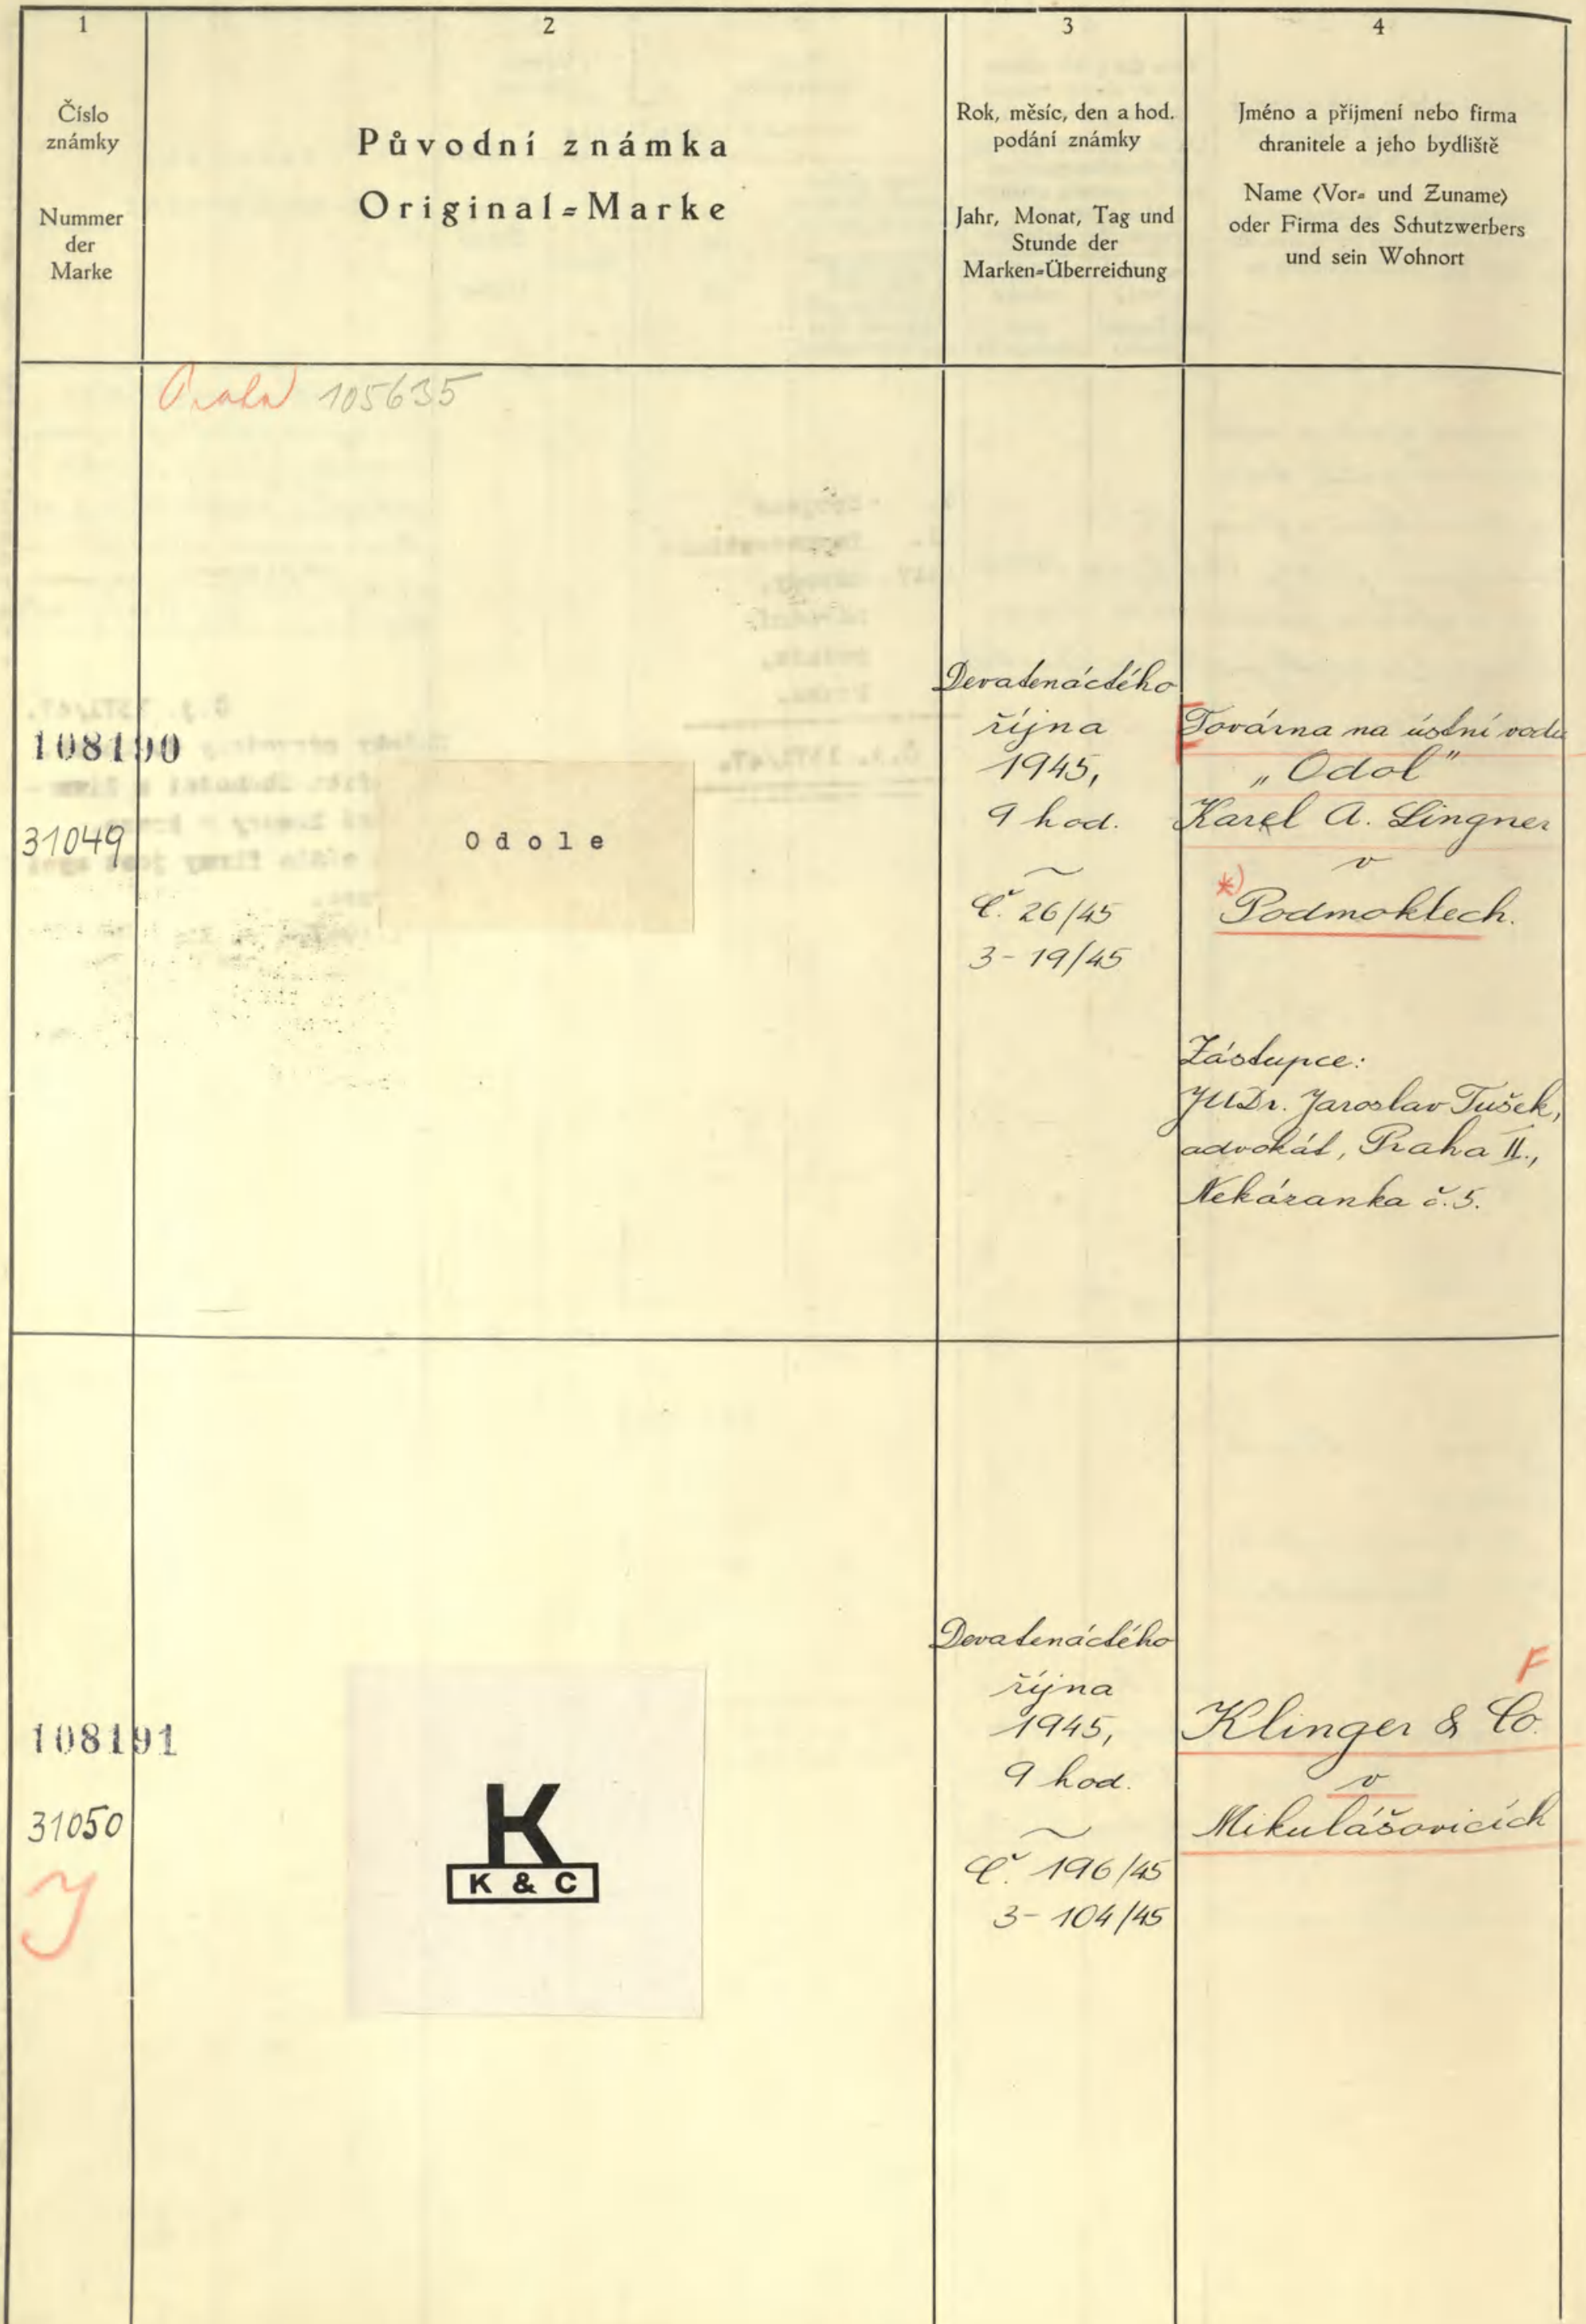 1
Číslo
známky
Nummer
der
Marke
2
Původní známka
Original-Marke
3
Rok, měsíc, den a hod.
podání známky
Jahr, Monat, Tag und
Stunde der
Marken-Überreichung
4
Jméno a příjmení nebo firma
chranitele a jeho bydliště
Name (Vor- und Zuname)
oder Firma des Schutzwerbers
und sein Wohnort
Praha 105635
108190
31049
Odole
Devatenáctého
října
1945,
9 hod.
Č. 26/45
3-19/45
Továrna na ústní vodu
„Odol"
Karel A. Lingner
v
*) Podmoklech.
Zástupce:
JUDr. Jaroslav Tušek,
advokát, Praha II.,
Nekázanka č. 5.
108191
31050
J
K
K & C
Devatenáctého
října
1945,
9 hod.
Č. 196/45
3-104/45
F
Klinger & Co.
v
Mikulášovicích